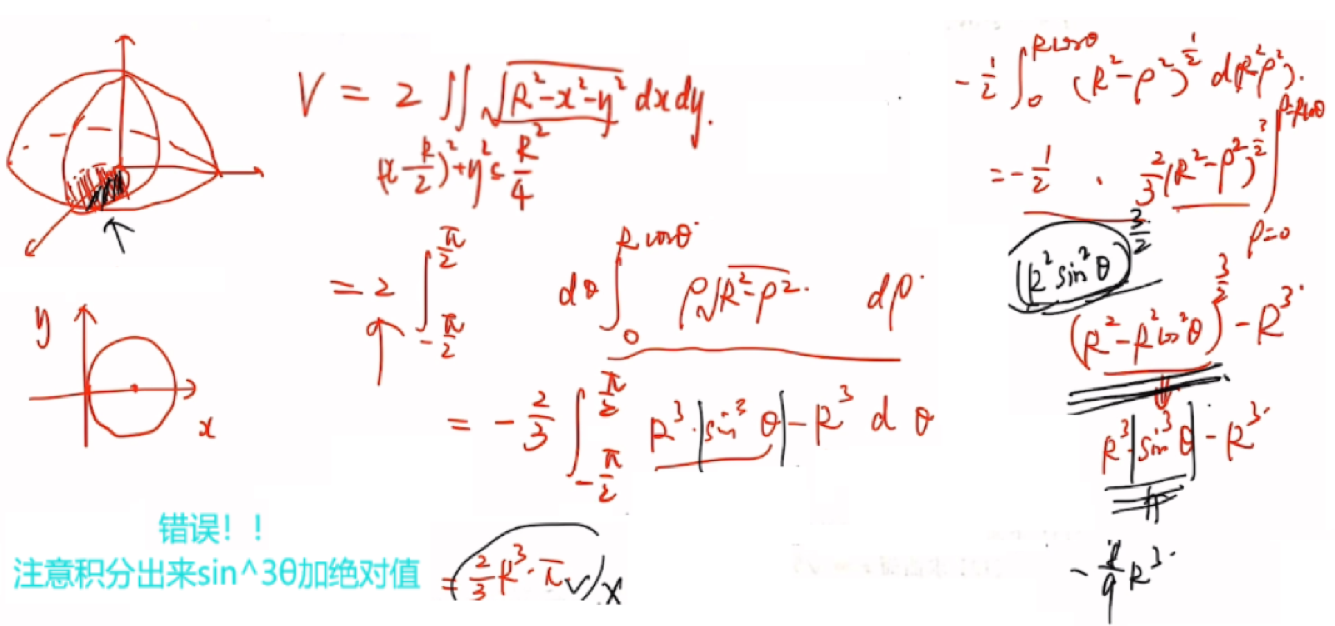 V = 2 ∬ √(R²-x²-y²) dxdy.
(x-R/2)²+y²≤R²/4
= 2 ∫_{-π/2}^{π/2} dθ ∫_0^{Rcosθ} ρ√(R²-ρ²) dρ
= -2/3 ∫_{-π/2}^{π/2} R³·|sin³θ| - R³ dθ
= 2/3 R³·π √ ×
y
x
错误！！
注意积分出来sin^3θ加绝对值
-1/2 ∫_0^{Rcosθ} (R²-ρ²)^{1/2} d(R²-ρ²).
= -1/2 · 2/3 (R²-ρ²)^{3/2} |_{ρ=0}^{ρ=Rcosθ}
(R²sin²θ)^{3/2}
(R²-R²cos²θ)^{3/2} - R³
R³|sin³θ| - R³